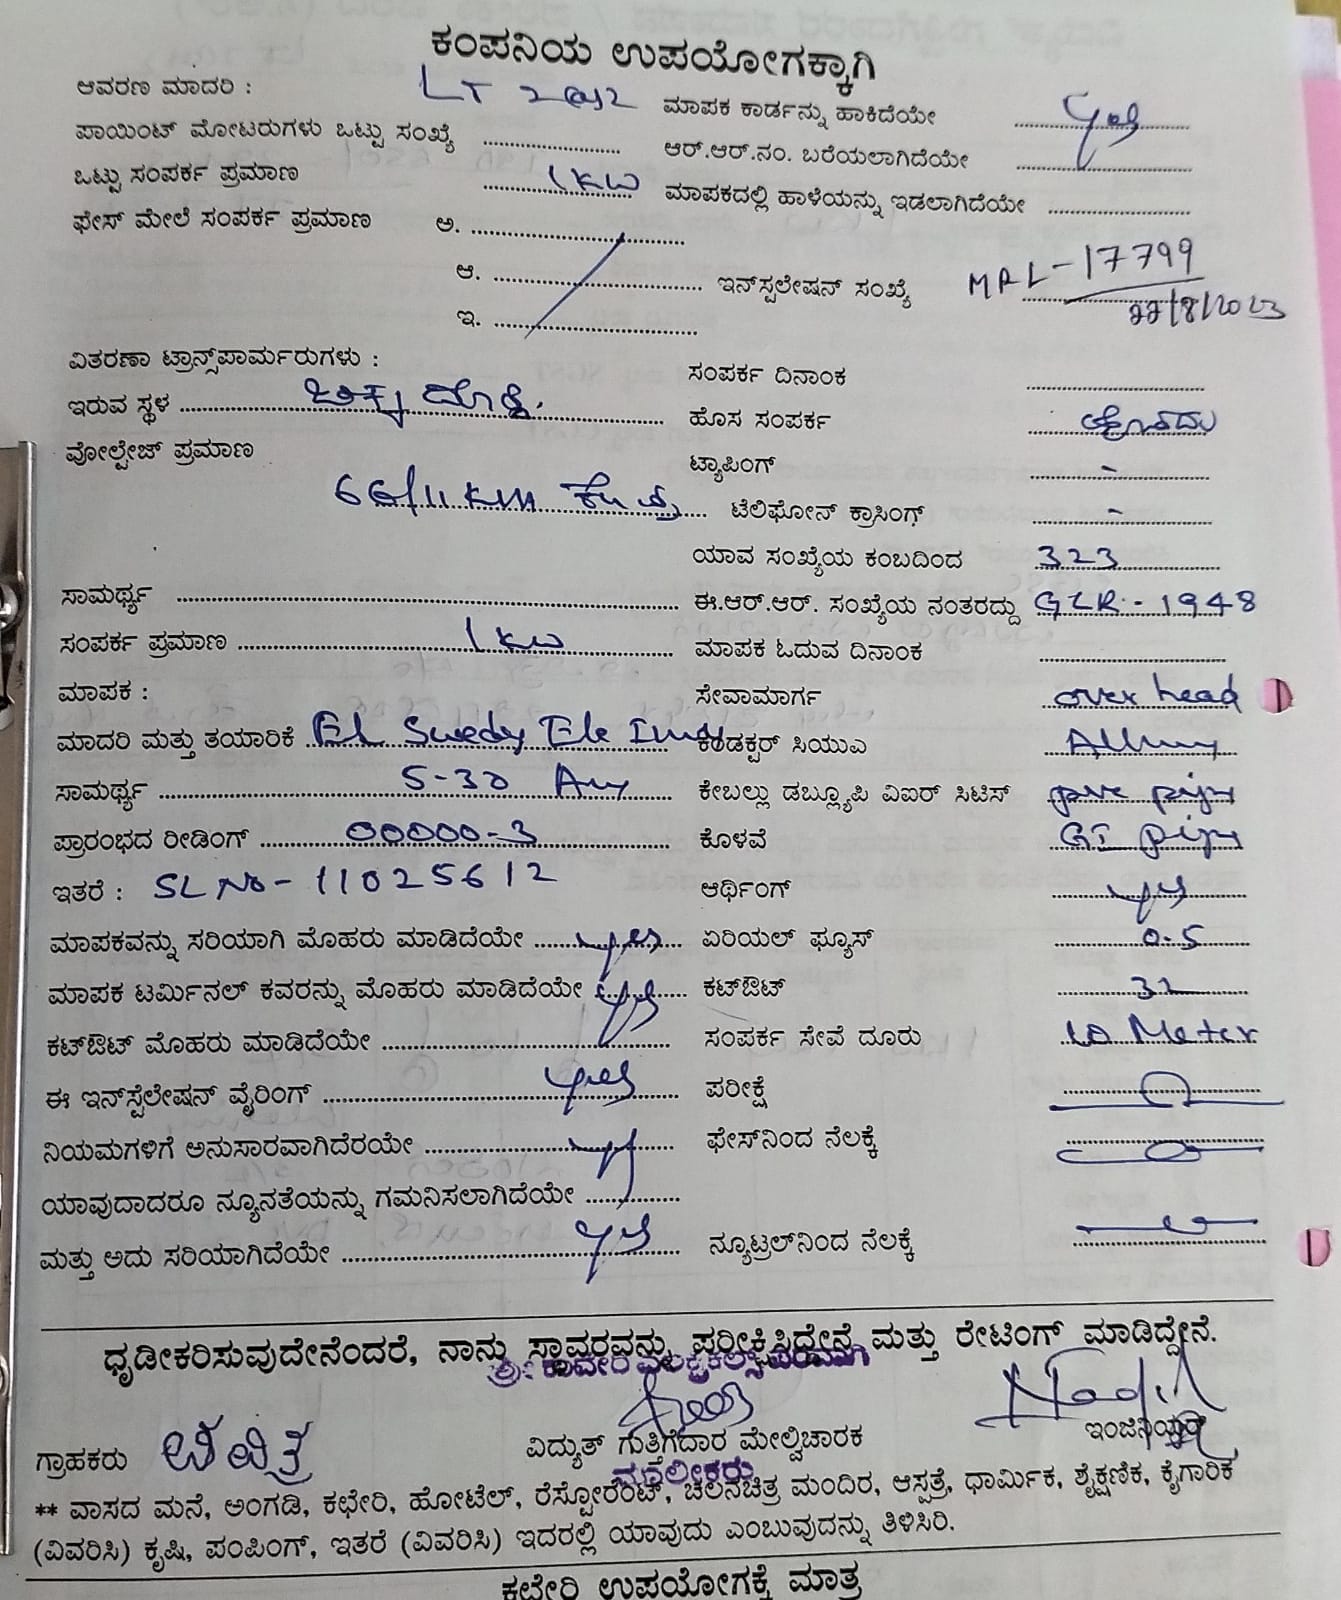 ಕಂಪನಿಯ ಉಪಯೋಗಕ್ಕಾಗಿ
ಆವರಣ ಮಾದರಿ : LT ಮಾಪಕ ಕಾರ್ಡನ್ನು ಹಾಕಿದೆಯೇ yes
ಪಾಯಿಂಟ್ ಮೋಟರುಗಳು ಒಟ್ಟು ಸಂಖ್ಯೆ ಆರ್.ಆರ್.ನಂ. ಬರೆಯಲಾಗಿದೆಯೇ
ಒಟ್ಟು ಸಂಪರ್ಕ ಪ್ರಮಾಣ 1KW ಮಾಪಕದಲ್ಲಿ ಹಾಳೆಯನ್ನು ಇಡಲಾಗಿದೆಯೇ
ಫೇಸ್ ಮೇಲೆ ಸಂಪರ್ಕ ಪ್ರಮಾಣ ಅ.
ಆ. ಇನ್‌ಸ್ಪಲೇಷನ್ ಸಂಖ್ಯೆ MRL-17799
ಇ. 22/8/2023
ವಿತರಣಾ ಟ್ರಾನ್ಸ್‌ಪಾರ್ಮರುಗಳು : ಸಂಪರ್ಕ ದಿನಾಂಕ
ಇರುವ ಸ್ಥಳ ಹೊಸ ಸಂಪರ್ಕ ಹೌದು
ವೋಲ್ಟೇಜ್ ಪ್ರಮಾಣ ಟ್ಯಾಪಿಂಗ್ -
66/11 ಟೆಲಿಫೋನ್ ಕ್ರಾಸಿಂಗ್ -
ಯಾವ ಸಂಖ್ಯೆಯ ಕಂಬದಿಂದ 323
ಸಾಮರ್ಥ್ಯ ಈ.ಆರ್.ಆರ್. ಸಂಖ್ಯೆಯ ನಂತರದ್ದು GLR - 1948
ಸಂಪರ್ಕ ಪ್ರಮಾಣ 1KW ಮಾಪಕ ಓದುವ ದಿನಾಂಕ
ಮಾಪಕ : ಸೇವಾಮಾರ್ಗ over head
ಮಾದರಿ ಮತ್ತು ತಯಾರಿಕೆ El Swedy Ele ಕಂಡಕ್ಟರ್ ಸಿಯುಎ
ಸಾಮರ್ಥ್ಯ 5-30 ಕೇಬಲ್ಲು ಡಬ್ಲ್ಯೂಪಿ ವಿಐರ್ ಸಿಟಿಸ್
ಪ್ರಾರಂಭದ ರೀಡಿಂಗ್ 00000-3 ಕೊಳವೆ GI
ಇತರೆ : SL No - 11025612 ಆರ್ಥಿಂಗ್ yes
ಮಾಪಕವನ್ನು ಸರಿಯಾಗಿ ಮೊಹರು ಮಾಡಿದೆಯೇ yes ಏರಿಯಲ್ ಫ್ಯೂಸ್ 0.5
ಮಾಪಕ ಟರ್ಮಿನಲ್ ಕವರನ್ನು ಮೊಹರು ಮಾಡಿದೆಯೇ yes ಕಟ್‌ಔಟ್ 32
ಕಟ್‌ಔಟ್ ಮೊಹರು ಮಾಡಿದೆಯೇ ಸಂಪರ್ಕ ಸೇವೆ ದೂರು 10 Meter
ಈ ಇನ್‌ಸ್ಪೆಲೇಷನ್ ವೈರಿಂಗ್ yes ಪರೀಕ್ಷೆ
ನಿಯಮಗಳಿಗೆ ಅನುಸಾರವಾಗಿದೆರಯೇ ಫೇಸ್‌ನಿಂದ ನೆಲಕ್ಕೆ
ಯಾವುದಾದರೂ ನ್ಯೂನತೆಯನ್ನು ಗಮನಿಸಲಾಗಿದೆಯೇ
ಮತ್ತು ಅದು ಸರಿಯಾಗಿದೆಯೇ yes ನ್ಯೂಟ್ರಲ್‌ನಿಂದ ನೆಲಕ್ಕೆ
ಧೃಡೀಕರಿಸುವುದೇನೆಂದರೆ, ನಾನು ಸ್ಥಾವರವನ್ನು ಪರೀಕ್ಷಿಸಿದ್ದೇನೆ ಮತ್ತು ರೇಟಿಂಗ್ ಮಾಡಿದ್ದೇನೆ.
ಗ್ರಾಹಕರು ವಿದ್ಯುತ್ ಗುತ್ತಿಗೆದಾರ ಮೇಲ್ವಿಚಾರಕ ಇಂಜಿನಿಯರ್
ಮಾಲೀಕರು
** ವಾಸದ ಮನೆ, ಅಂಗಡಿ, ಕಛೇರಿ, ಹೋಟೆಲ್, ರೆಸ್ಟೋರೆಂಟ್, ಚಲನಚಿತ್ರ ಮಂದಿರ, ಆಸ್ಪತ್ರೆ, ಧಾರ್ಮಿಕ, ಶೈಕ್ಷಣಿಕ, ಕೈಗಾರಿಕೆ
(ವಿವರಿಸಿ) ಕೃಷಿ, ಪಂಪಿಂಗ್, ಇತರೆ (ವಿವರಿಸಿ) ಇದರಲ್ಲಿ ಯಾವುದು ಎಂಬುವುದನ್ನು ತಿಳಿಸಿರಿ.
ಕಛೇರಿ ಉಪಯೋಗಕ್ಕೆ ಮಾತ್ರ